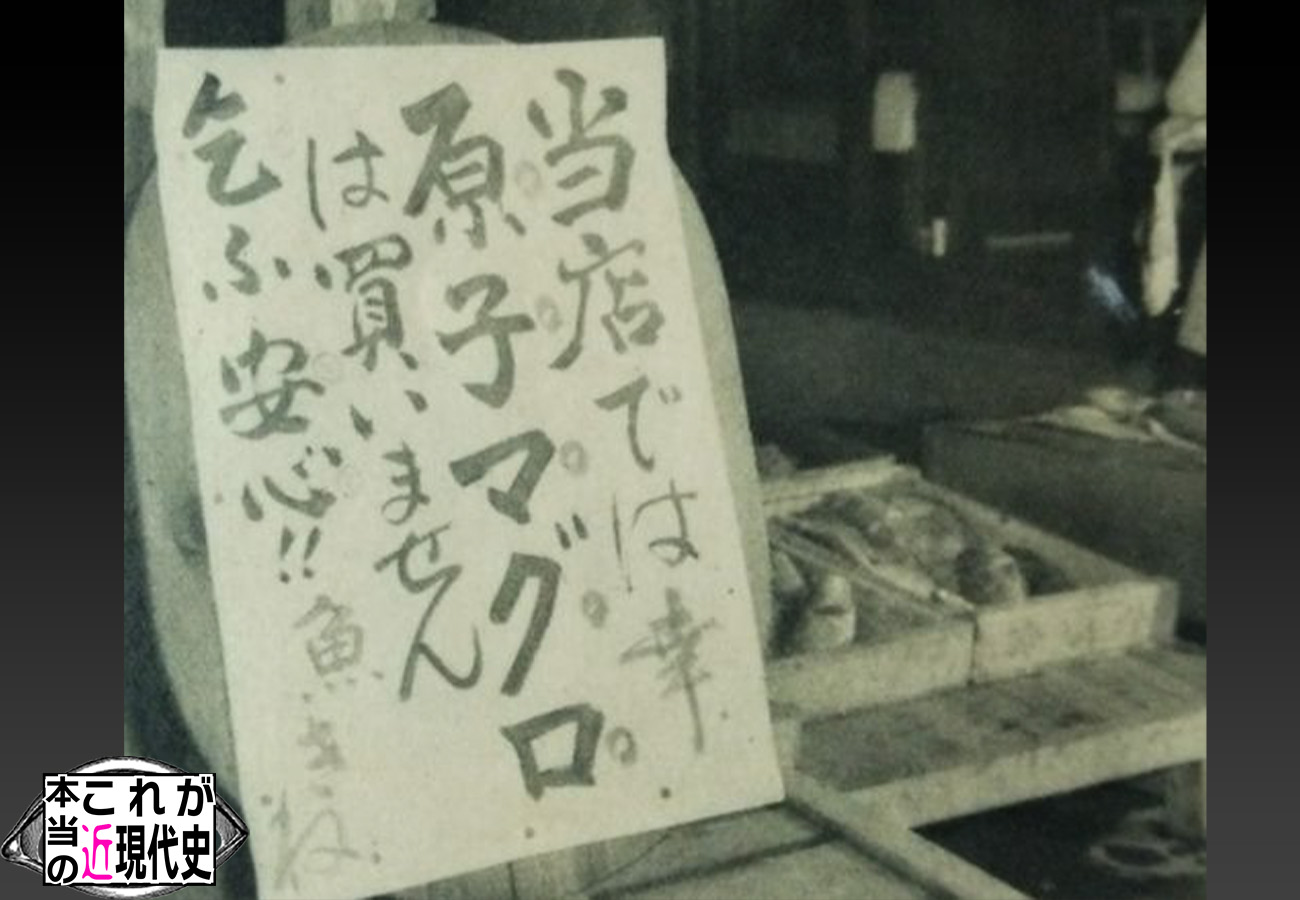 当店では幸
原子マグロ
は買いません
乞ふ安心!! 魚きね
これが
本当の
近現代史